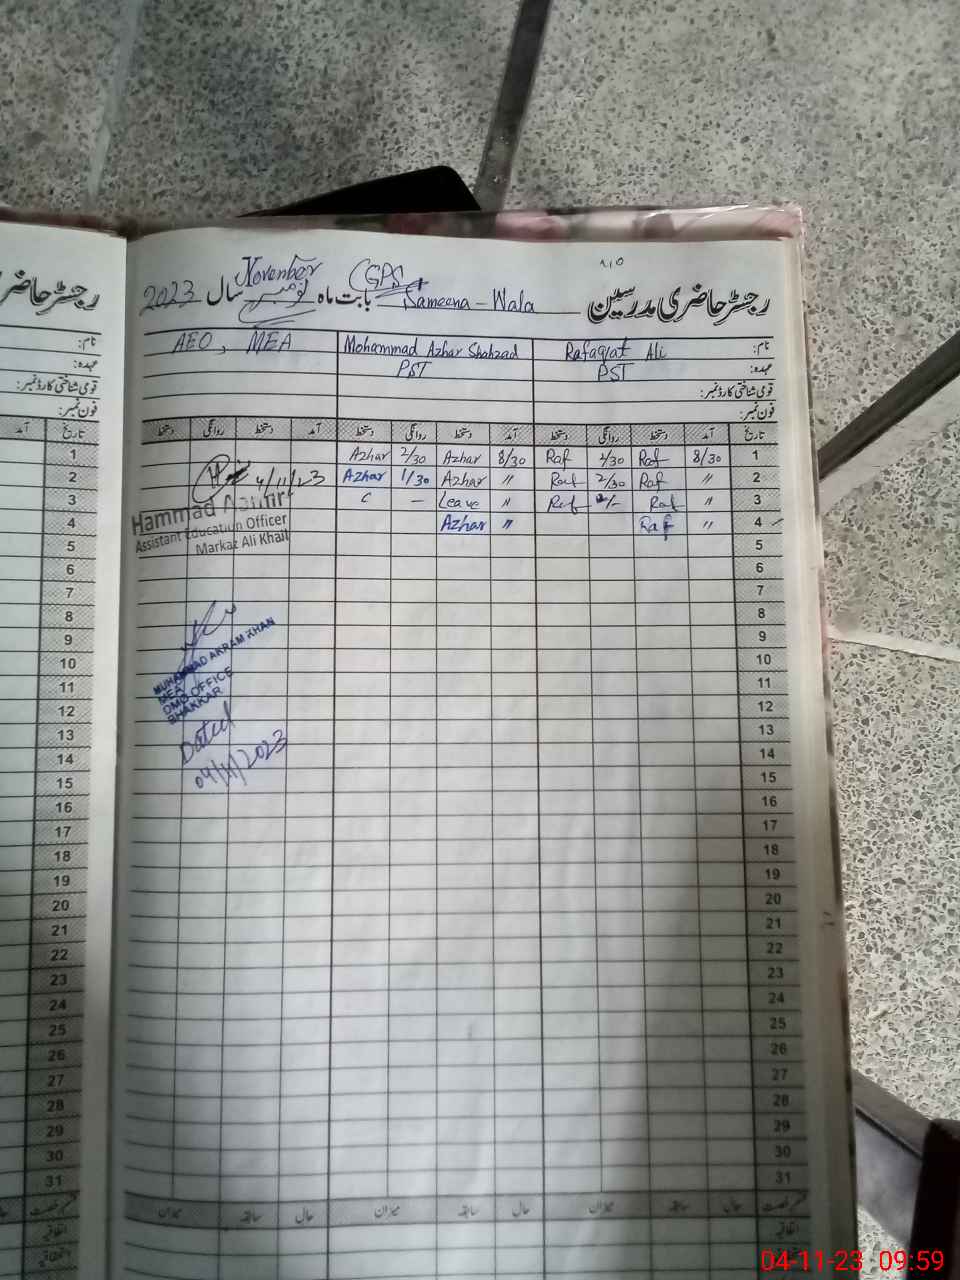 رجسٹر حاضری مدرسین
CGPS Sameena - Wala
بابت ماہ نومبر November سال 2023
نام: Rafaqat Ali Mohammad Azhar Shahzad AEO, MEA
عہدہ: PST PST
قومی شناختی کارڈ نمبر:
فون نمبر:
تاریخ آمد دستخط روانگی دستخط آمد دستخط روانگی دستخط آمد دستخط روانگی دستخط
1 8/30 Raf 2/30 Raf 8/30 Azhar 2/30 Azhar
2 〃 Raf 2/30 Raf 〃 Azhar 1/30 Azhar
3 〃 Raf Raf Leave — C
4 〃 Raf 〃 Azhar
5
6
7
8
9
10
11
12
13
14
15
16
17
18
19
20
21
22
23
24
25
26
27
28
29
30
31
حال سابقہ میزان حال سابقہ میزان حال سابقہ میزان
اتفاقیہ
4/11/23
Hammad Aamir
Assistant Education Officer
Markaz Ali Khail
MUHAMMAD AKRAM KHAN
MEA
DMO OFFICE
BHAKKAR
Dated
04/11/2023
رجسٹر حاضری
نام:
عہدہ:
قومی شناختی کارڈ نمبر:
فون نمبر:
تاریخ آمد
1
2
3
4
5
6
7
8
9
10
11
12
13
14
15
16
17
18
19
20
21
22
23
24
25
26
27
28
29
30
31
اتفاقیہ
04-11-23 09:59